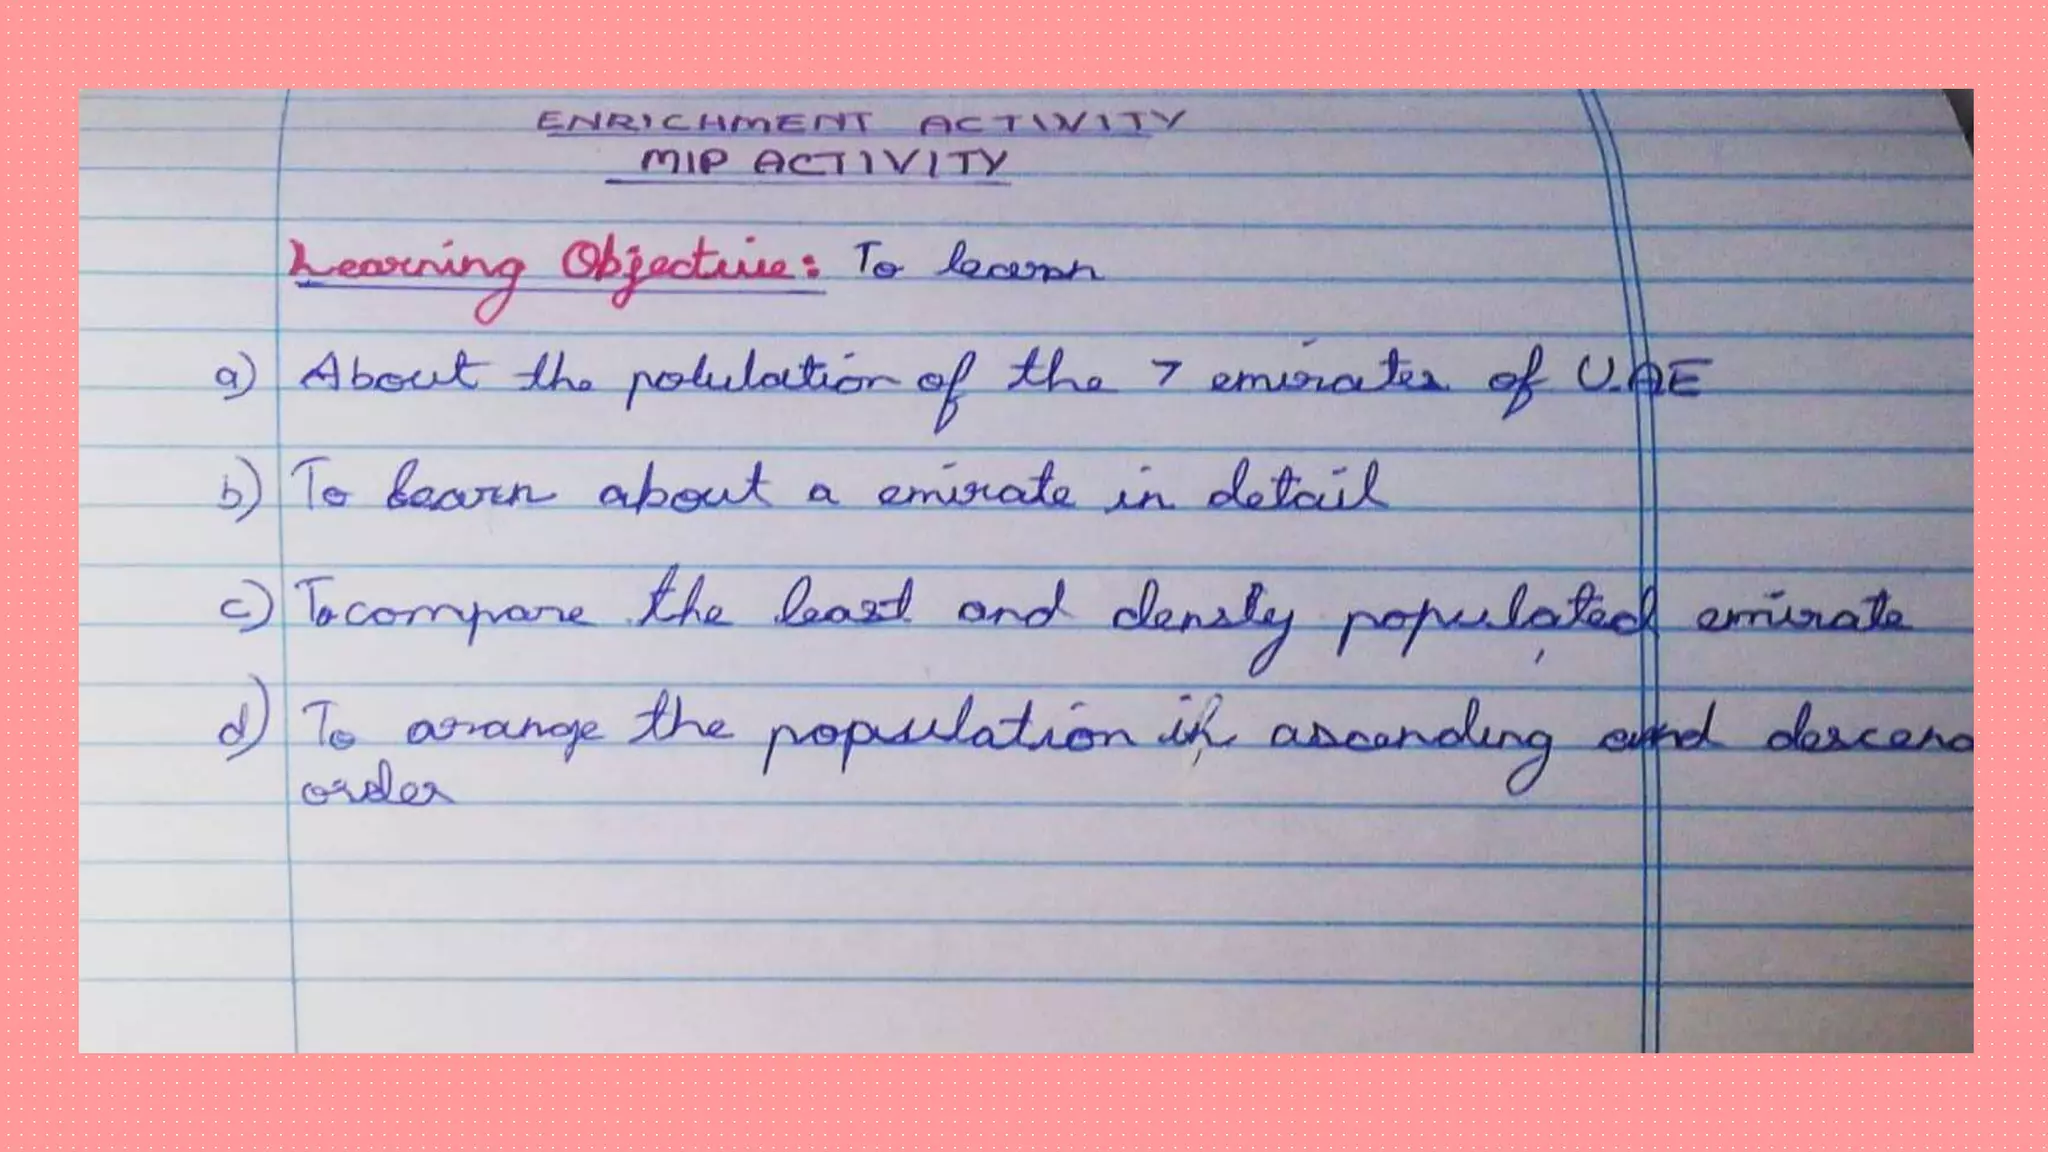 ENRICHMENT ACTIVITY
MIP ACTIVITY
Learning Objective: To learn
a) About the polulation of the 7 emirates of U.AE
b) To learn about a emirate in detail
c) To compare the least and densly populated emirate
d) To arrange the population in ascending and descend
order